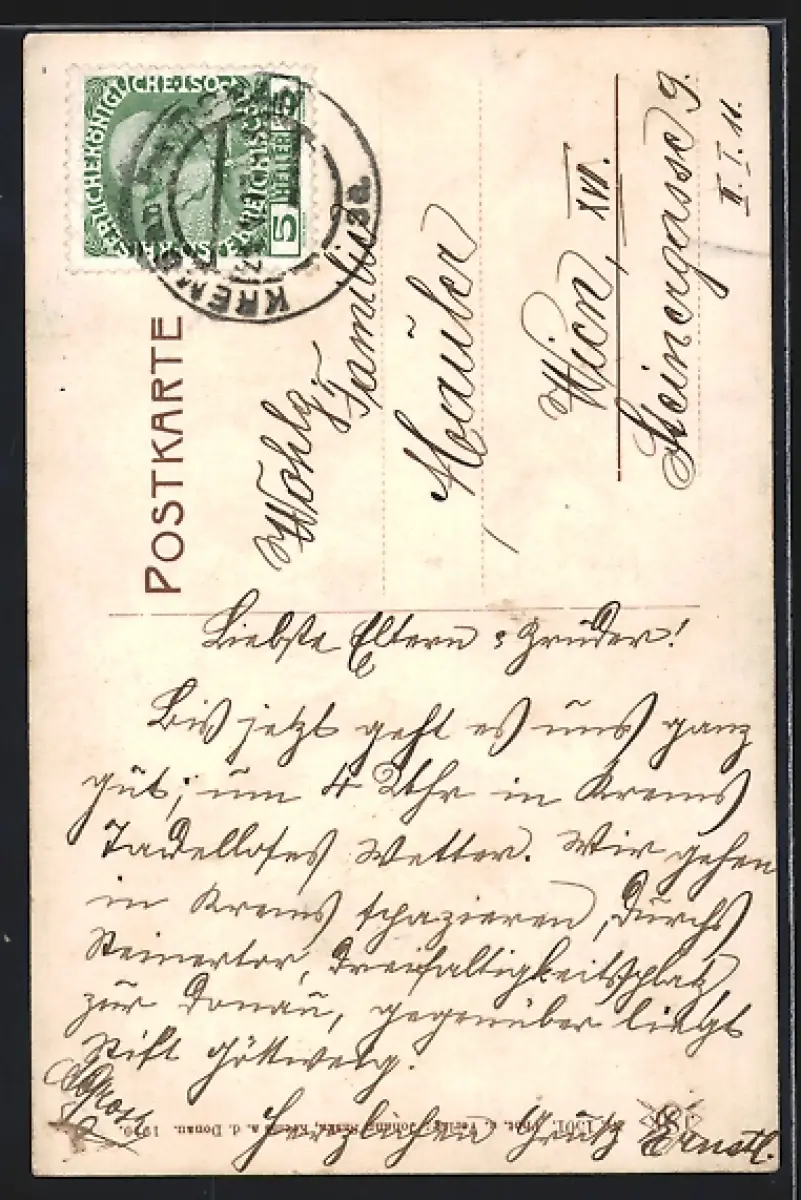 KAISERLICHEKÖNIGLICHE ÖSTERREICHISCHE
5 HELLER 5
KREMS
POSTKARTE
Wohlg.
Familie
Mauler
Wien, XVII.
Steinergasse 9.
II. I. 11.
Liebste Eltern & Bruder!
Bis jetzt geht es uns ganz
gut; um 4 Uhr in Krems
Tadelloses Wetter. Wir gehen
in Krems spazieren, durchs
Steinertor, Dreifaltigkeitsplatz
zur Donau, gegenüber liegt
Stift Göttweig.
Herzlichen Gruß Ernstl.
1501. Phot. u. Verlag: Johann Krems a. d. Donau. 1910.